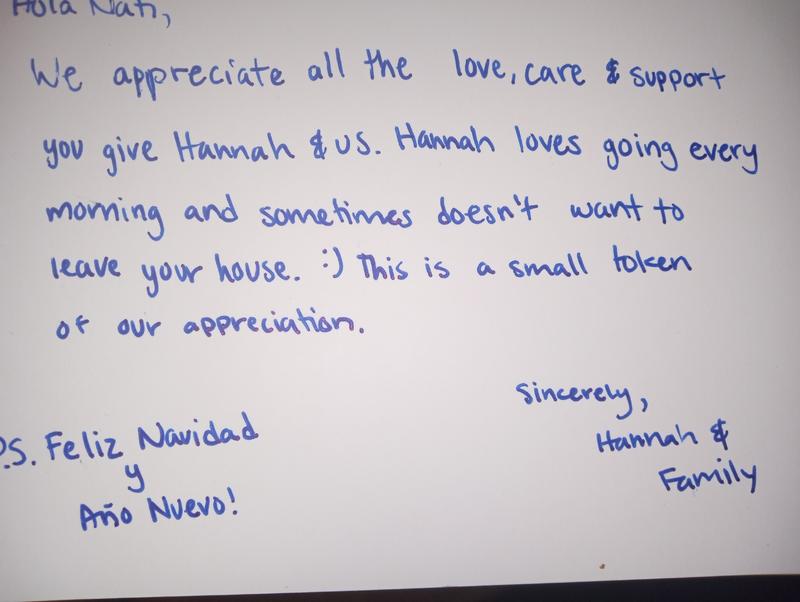 Hola Nati,
We appreciate all the love, care & support
you give Hannah & us. Hannah loves going every
morning and sometimes doesn't want to
leave your house. :) This is a small token
of our appreciation.
Sincerely,
Hannah &
Family
P.S. Feliz Navidad
y
Año Nuevo!